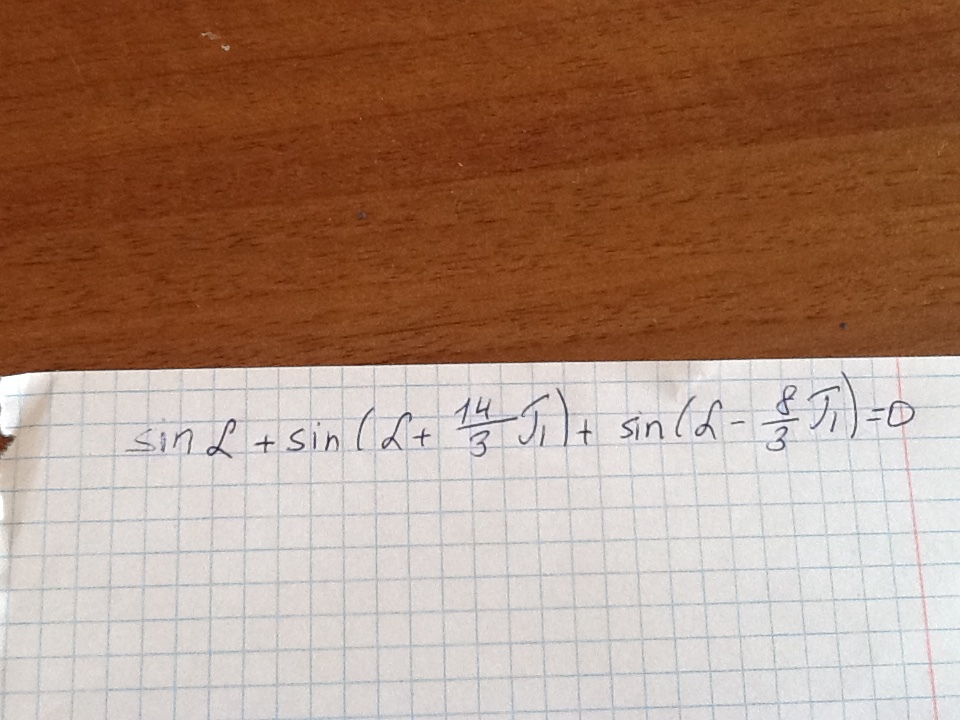 sin α + sin (α + 14/3 π) + sin (α - 8/3 π) = 0